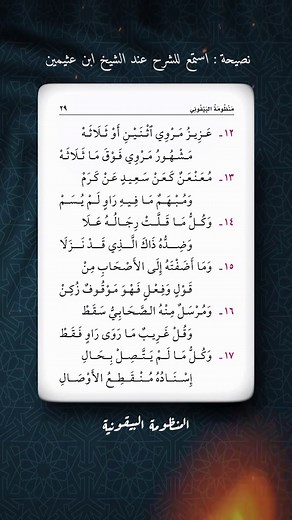 نصيحة : استمع للشرح عند الشيخ ابن عثيمين
مَنْظُومَةُ البَيْقُونِي
٢٩
١٢- عَزِيزُ مَرْوِي اثْنَيْنِ أَوْ ثَلَاثَهْ
مَشْهُورُ مَرْوِي فَوْقَ مَا ثَلَاثَهْ
١٣- مُعَنْعَنٌ كَعَنْ سَعِيدٍ عَنْ كَرَمْ
وَمُبْهَمٌ مَا فِيهِ رَاوٍ لَمْ يُسَمْ
١٤- وَكُلُّ مَا قَلَّتْ رِجَالُهُ عَلَا
وَضِدُّهُ ذَاكَ الَّذِي قَدْ نَزَلَا
١٥- وَمَا أَضَفْتَهُ إِلَى الأَصْحَابِ مِنْ
قَوْلٍ وَفِعْلٍ فَهْوَ مَوْقُوفٌ زُكِنْ
١٦- وَمُرْسَلٌ مِنْهُ الصَّحَابِيُّ سَقَطْ
وَقُلْ غَرِيبٌ مَا رَوَى رَاوٍ فَقَطْ
١٧- وَكُلُّ مَا لَمْ يَتَّصِلْ بِحَالِ
إِسْنَادُهُ مُنْقَطِعُ الأَوْصَالِ
المنظومة البيقونية